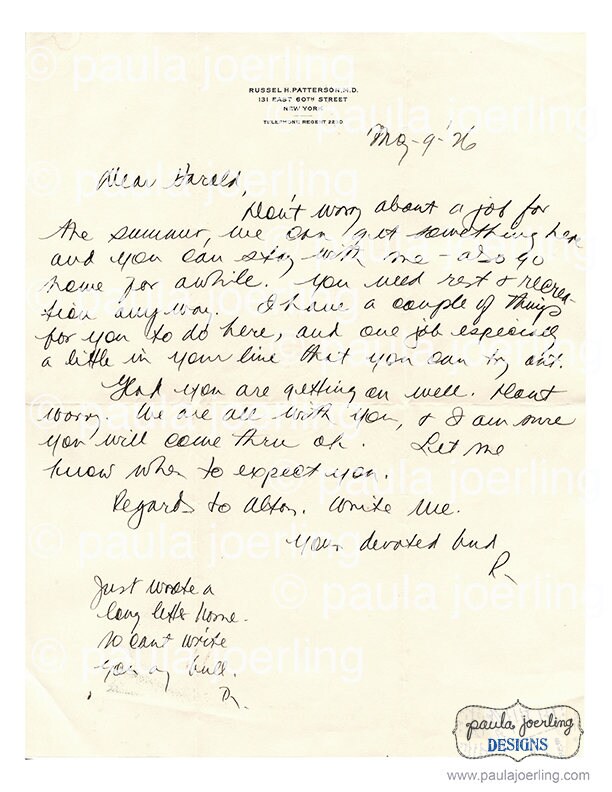 RUSSEL H. PATTERSON, M.D.
131 EAST 60TH STREET
NEW YORK
TELEPHONE REGENT
May - 9 - '26
Dear Harold,
Don't worry about a job for
the summer, we can get something here
and you can stay with me - also go
home for awhile. You need rest & recrea-
tion anyway. I have a couple of things
for you to do here, and one job especially
a little in your line that you can try out.
Glad you are getting on well. Don't
worry. We are all with you, & I am sure
you will come thru ok. Let me
know when to expect you.
Regards to Alton. Write me.
Your devoted bud
R
Just wrote a
long letter home.
So can't write
you
R.
© paula joerling
paula joerling
DESIGNS
www.paulajoerling.com